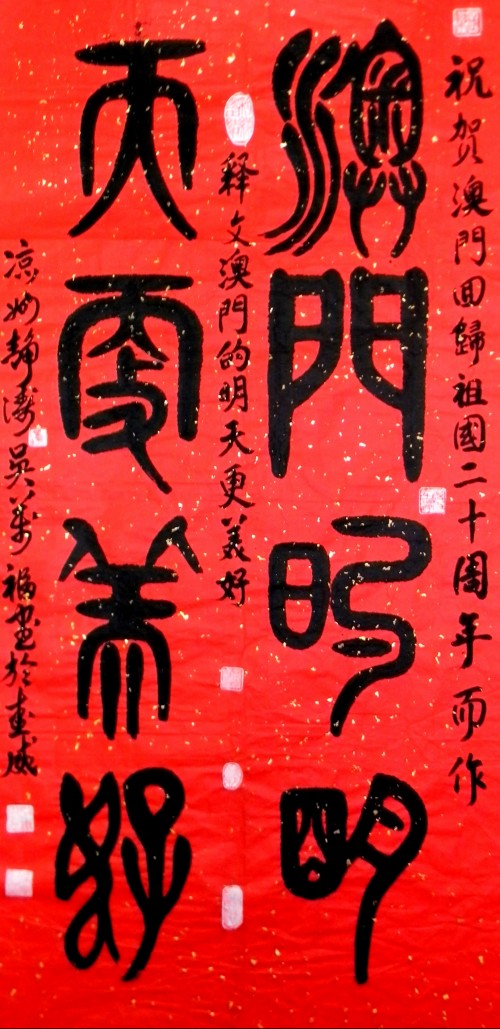 祝贺澳門回歸祖國二十周年而作
澳門的明
释文澳門的明天更美好
天更美好
凉州靜濤吳萬福書於武威